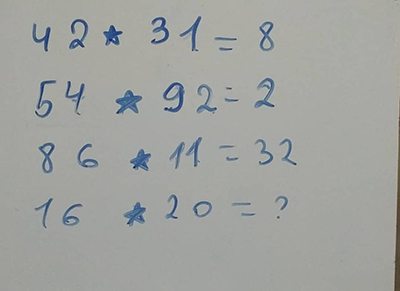 42 ★ 31 = 8
54 ★ 92 = 2
86 ★ 11 = 32
16 ★ 20 = ?